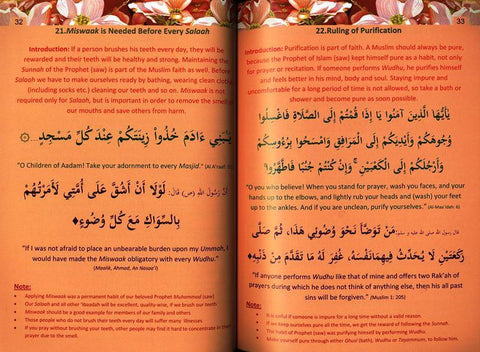 32
21.Miswaak is Needed Before Every Salaah
Introduction: If a person brushes his teeth every day, they will be
rewarded and their teeth will be healthy and strong. Maintaining the
Sunnah of the Prophet (saw) is part of the Muslim faith as well. Before
Salaah we have to make ourselves ready by bathing, wearing clean clothing
(including socks etc.) cleaning our teeth and so on. Miswaak is not
required only for Salaah, but is important in order to remove the smell of
our mouths and save others from harm.
يَٰبَنِىٓ ءَادَمَ خُذُوا۟ زِينَتَكُمْ عِندَ كُلِّ مَسْجِدٍ
"O Children of Aadam! Take your adornment to every Masjid."
أَنَّ رَسُولَ اللَّهِ (ص) قَالَ: لَوْلَا أَنْ أَشُقَّ عَلَى أُمَّتِي لَأَمَرْتُهُمْ
بِالسِّوَاكِ مَعَ كُلِّ وُضُوءٍ
"If I was not afraid to place an unbearable burden upon my Ummah, I
would have made the Miswaak obligatory with every Wudhu."
(Maalik, Ahmad, An Nasaa'i)
Note:
• Applying Miswaak was a permanent habit of our beloved Prophet Muhammad (saw)
• Our Salaah and all other 'Ibaadah will be excellent, quality wise, if we brush our teeth
• Miswaak should be a good example for members of our family and others
• Those people who do not brush their teeth every day will suffer many illnesses
• If you pray without brushing your teeth, other people may find it hard to concentrate in their
prayer due to the smell.
33
22.Ruling of Purification
Introduction: Purification is part of faith. A Muslim should always be pure,
because the Prophet of Islam (saw) kept himself pure as a habit, not only
for prayer or recitation. If someone performs Wudhu, he purifies himself
and feels better in his mind, body and soul. Staying impure and
uncomfortable for a long period of time is not allowed, so take a bath or
shower and become pure as soon as possible.
يَٰٓأَيُّهَا الَّذِينَ آمَنُوا إِذَا قُمْتُمْ إِلَى الصَّلَاةِ فَاغْسِلُوا
وُجُوهَكُمْ وَأَيْدِيَكُمْ إِلَى الْمَرَافِقِ وَامْسَحُوا بِرُءُوسِكُمْ
وَأَرْجُلَكُمْ إِلَى الْكَعْبَيْنِ ۚ وَإِن كُنتُمْ جُنُبًا فَاطَّهَّرُوا
"O you who believe! When you stand for prayer, wash you faces, and your
hands up to the elbows, and lightly rub your heads and (wash) your feet
up to the ankles. And if you are unclean, purify yourselves." (Al-Maa'idah: 6)
قال رسول الله صلى الله عليه و سلم: مَنْ تَوَضَّأَ نَحْوَ وُضُوئِي هَذَا، ثُمَّ صَلَّى
رَكْعَتَيْنِ لَا يُحَدِّثُ فِيهِمَا نَفْسَهُ، غُفِرَ لَهُ مَا تَقَدَّمَ مِنْ ذَنْبِهِ
"If anyone performs Wudhu like that of mine and offers two Rak'ah of
prayers during which he does not think of anything else, then his all past
sins will be forgiven." (Muslim 1: 205)
Note:
• It is sinful if someone is impure for a long time without a valid reason.
• If we keep ourselves pure all the time, we get the reward of following the Sunnah.
• The habit of the Prophet (saw) was purifying himself by performing Wudhu.
• Make yourself pure through either Ghusl (bath), Wudhu or Tayammum, to follow him.